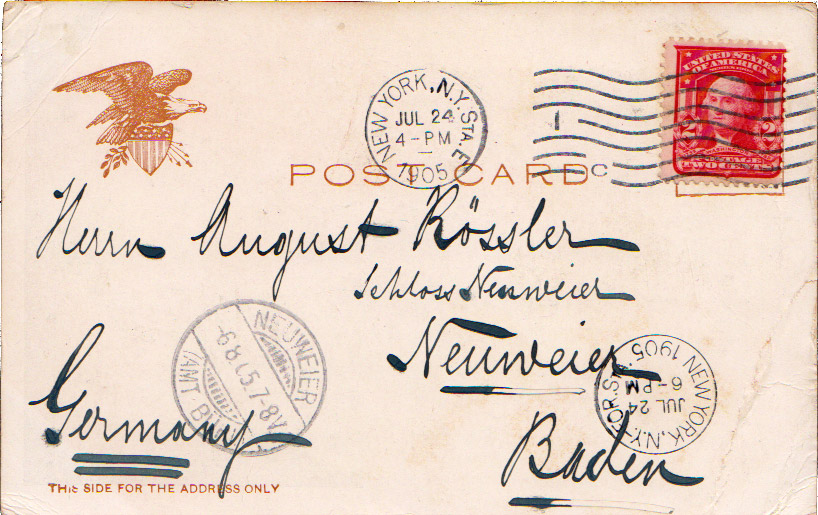 NEW YORK, N.Y. STA. E
JUL 24
4-PM
1905
1
C
UNITED STATES
OF AMERICA
2 2
WASHINGTON
POSTAGE
TWO CENTS
POST CARD
Herrn August Rössler
Schloss Neuweier
Neuweier
Baden
Germany
NEUWEIER
-6.8.05.7-8V
(AMT
NEW YORK, N.Y. FOR. STA.
JUL 24
6-PM
1905
THIS SIDE FOR THE ADDRESS ONLY